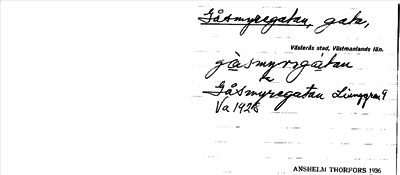 Gåsmyregatan, gata,
Västerås stad, Västmanlands län.
gåsmyrgatan
Gåsmyregatan Ljunggren
Va 1928
ANSHELM THORFORS 1936